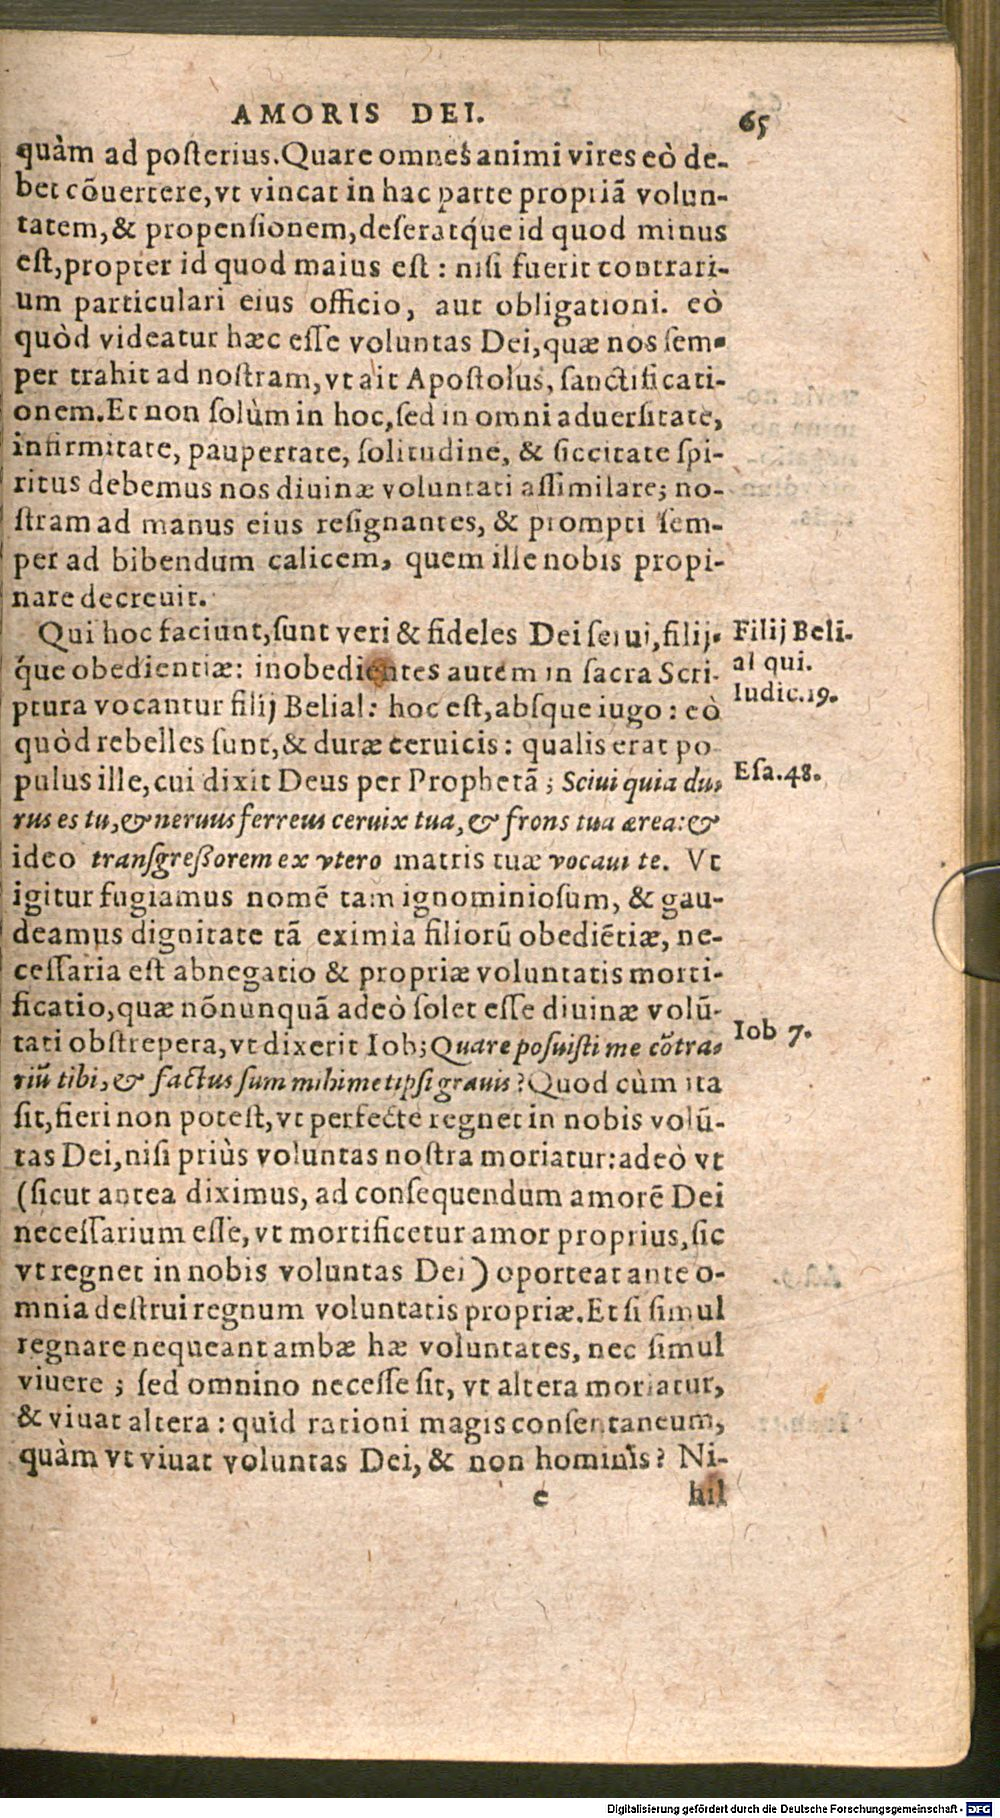 AMORIS DEI. 65
quàm ad posterius. Quare omnes animi vires eò de-
bet cõuertere, vt vincat in hac parte propriã volun-
tatem, & propensionem, deseratq́ue id quod minus
est, propter id quod maius est : nisi fuerit contrari-
um particulari eius officio, aut obligationi. eò
quòd videatur hæc esse voluntas Dei, quæ nos sem-
per trahit ad nostram, vt ait Apostolus, sanctificati-
onem. Et non solùm in hoc, sed in omni aduersitate,
infirmitate, paupertate, solitudine, & siccitate spi-
ritus debemus nos diuinæ voluntati assimilare; no-
stram ad manus eius resignantes, & prompti sem-
per ad bibendum calicem, quem ille nobis propi-
nare decreuit.
Qui hoc faciunt, sunt veri & fideles Dei serui, filij-
q́ue obedientiæ: inobedientes autem in sacra Scri-
ptura vocantur filij Belial: hoc est, absque iugo : eò
quòd rebelles sunt, & duræ ceruicis : qualis erat po
pulus ille, cui dixit Deus per Prophetã ; Sciui quia du-
rus es tu, & neruus ferreus ceruix tua, & frons tua ærea: &
ideo transgressorem ex vtero matris tuæ vocaui te. Vt
igitur fugiamus nomẽ tam ignominiosum, & gau-
deamus dignitate tã eximia filiorũ obediẽtiæ, ne-
cessaria est abnegatio & propriæ voluntatis morti-
ficatio, quæ nõnunquã adeò solet esse diuinæ volũ-
tati obstrepera, vt dixerit Iob; Quare posuisti me cõtra-
riũ tibi, & factus sum mihimetipsi grauis? Quod cùm ita
sit, fieri non potest, vt perfectè regnet in nobis volũ-
tas Dei, nisi priùs voluntas nostra moriatur: adeò vt
(sicut antea diximus, ad consequendum amorẽ Dei
necessarium esse, vt mortificetur amor proprius, sic
vt regnet in nobis voluntas Dei) oporteat ante o-
mnia destrui regnum voluntatis propriæ. Et si simul
regnare nequeant ambæ hæ voluntates, nec simul
viuere ; sed omnino necesse sit, vt altera moriatur,
& viuat altera : quid rationi magis consentaneum,
quàm vt viuat voluntas Dei, & non hominis? Ni-
e hil
Filij Beli-
al qui.
Iudic. 19.
Esa. 48.
Iob 7.
Digitalisierung gefördert durch die Deutsche Forschungsgemeinschaft - DFG